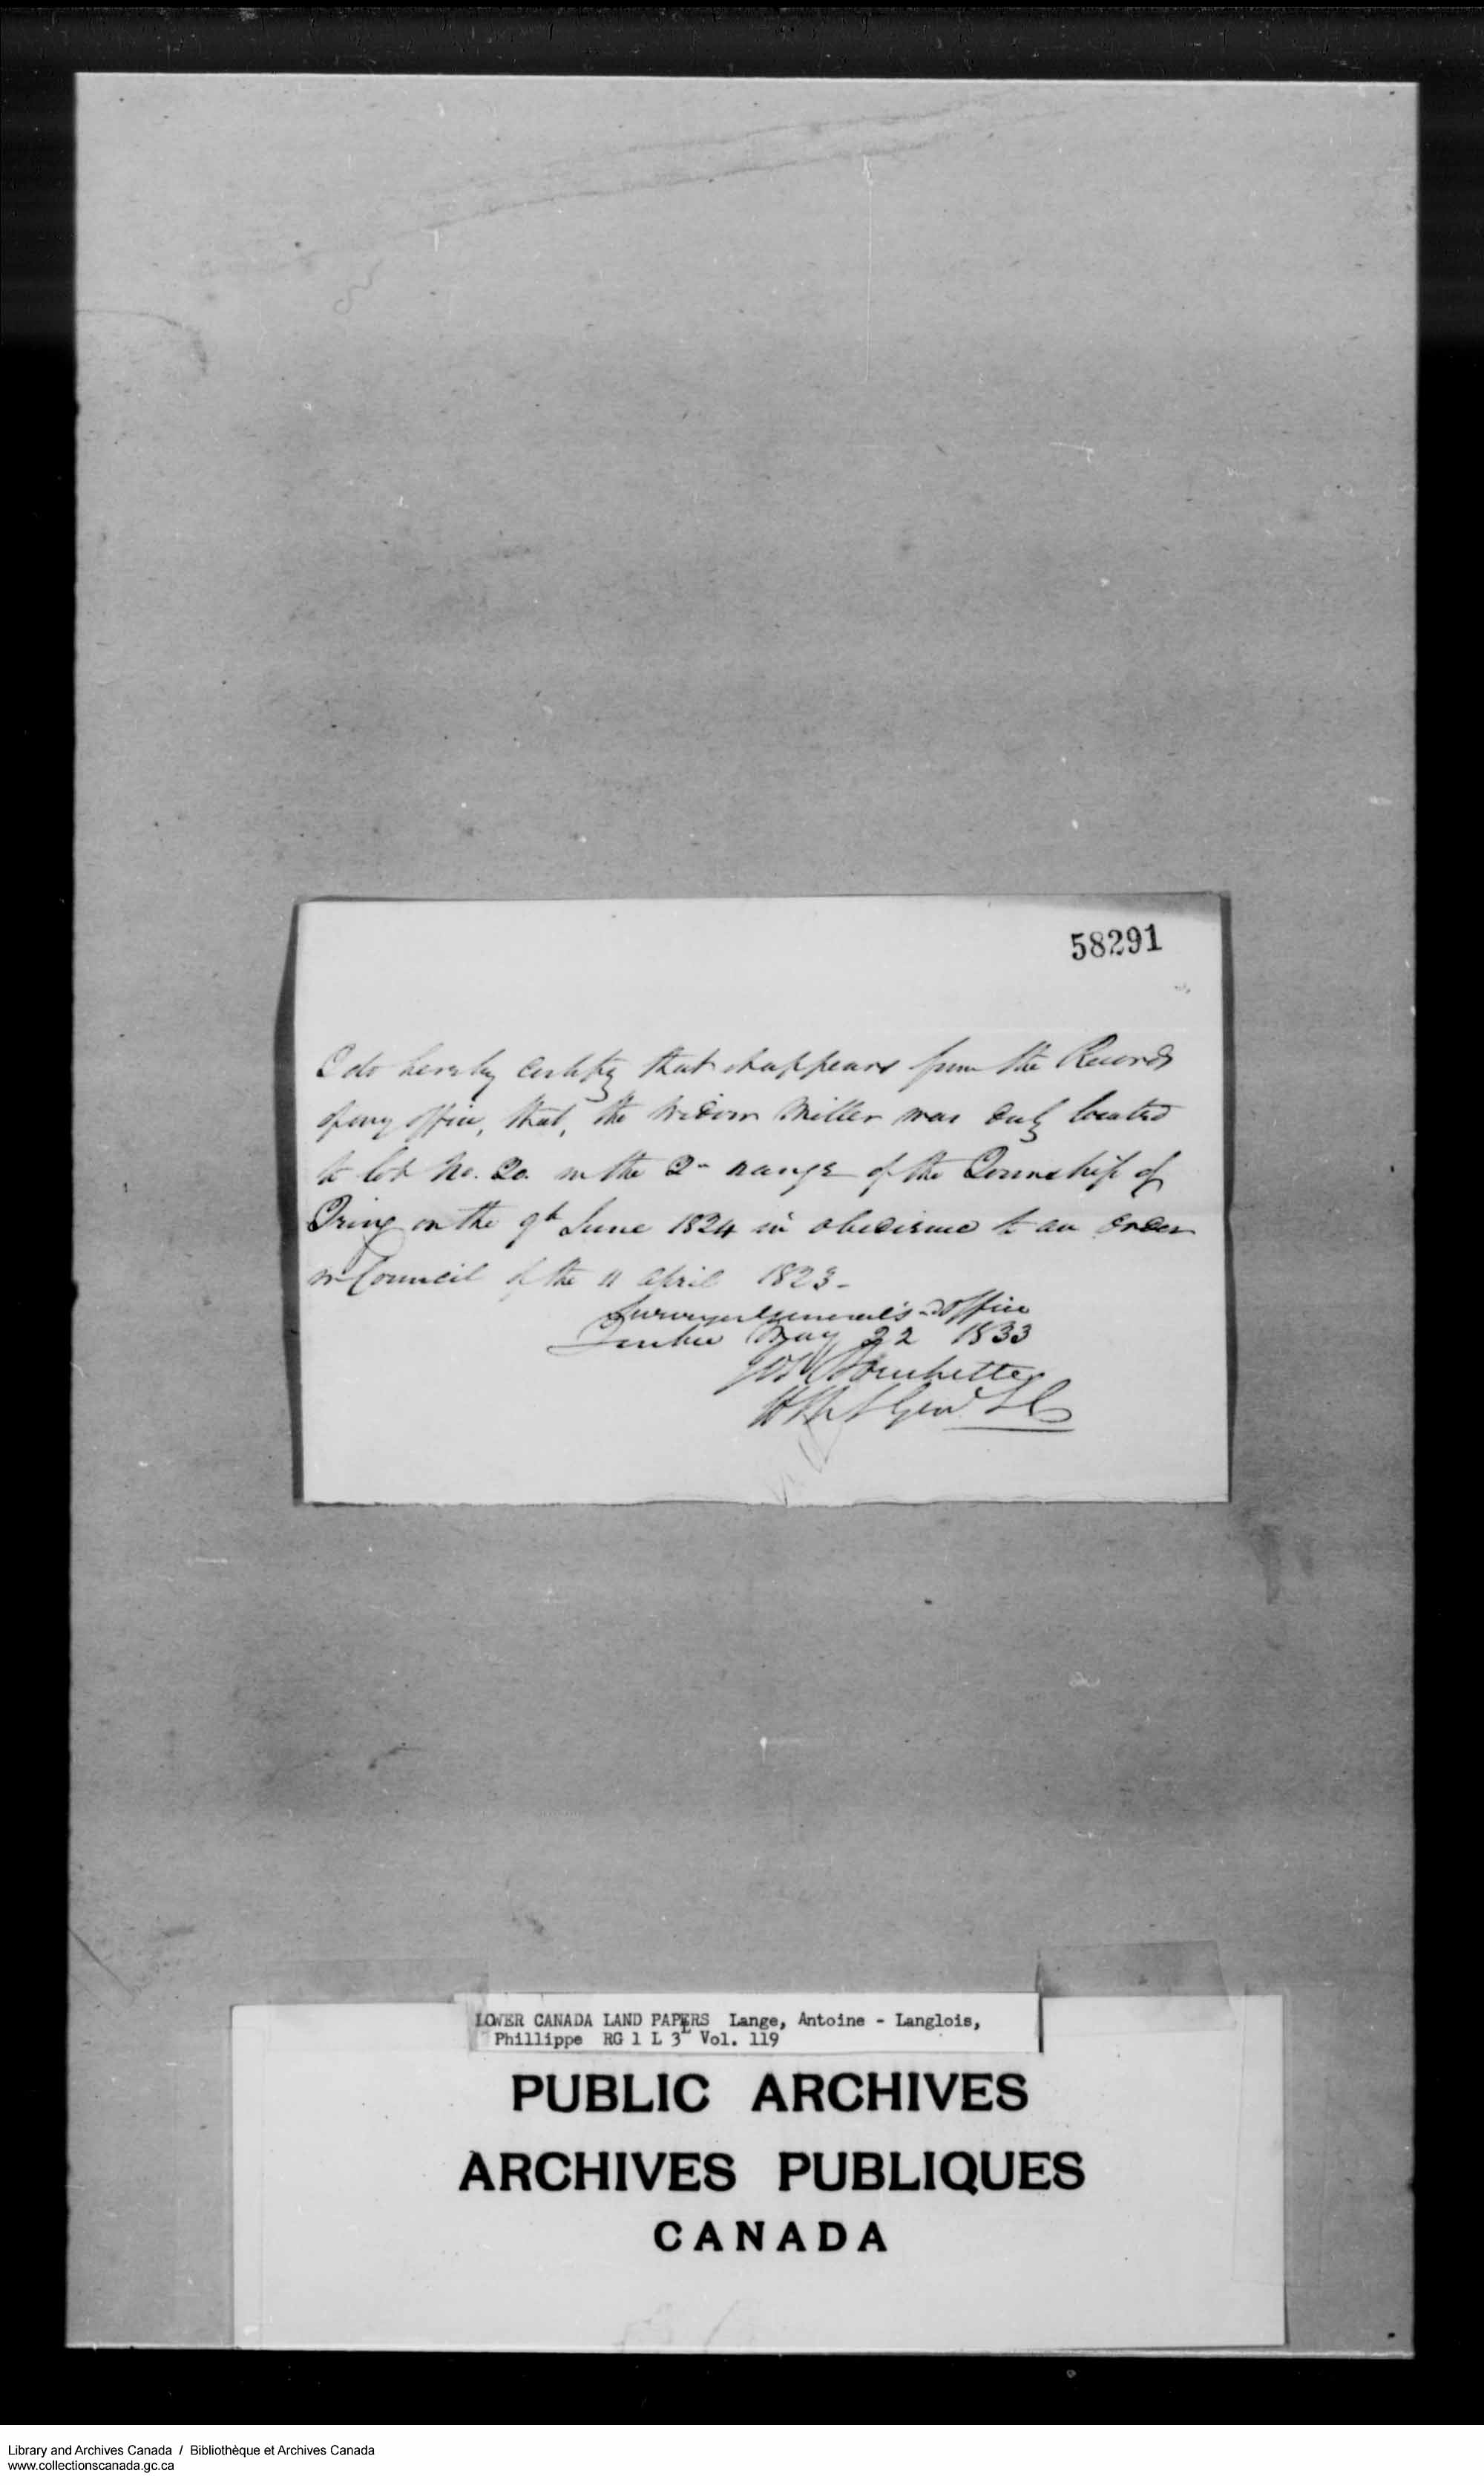 58291
I do hereby certify that it appears from the Records
of my office, that, the Widow Miller was duly located
to lot No. 20 in the 2d range of the Township of
Tring on the 9th June 1824 in obedience to an order
in Council of the 11 April 1823 -
Surveyor General's Office
Quebec May 22 1833
Jos Bouchette
S Genl L C
LOWER CANADA LAND PAPERS Lange, Antoine - Langlois,
Phillippe RG 1 L 3L Vol. 119
PUBLIC ARCHIVES
ARCHIVES PUBLIQUES
CANADA
Library and Archives Canada / Bibliothèque et Archives Canada
www.collectionscanada.gc.ca